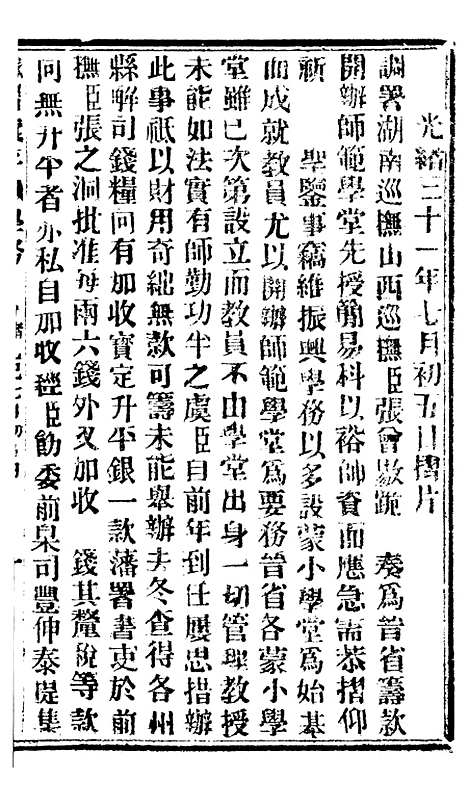 光緒三十一年七月初五日摺片
調署湖南巡撫山西巡撫臣張曾敭跪　奏爲晉省籌款
開辦師範學堂先授簡易科以裕師資而應急需恭摺仰
祈　聖鑒事竊維振興學務以多設蒙小學堂爲始基
而成就教員尤以開辦師範學堂爲要務晉省各蒙小學
堂雖已次第設立而教員不由學堂出身一切管理教授
未能如法實有師勤功半之虞臣自前年到任屢思措辦
此事祗以財用奇絀無款可籌未能舉辦去冬查得各州
縣解司錢糧向有加收實定升平銀一款藩署書吏於前
撫臣張之洞批准每兩六錢外又加收　錢其釐稅等款
向無升平者亦私自加收經臣飭委前臬司豐伸泰提集